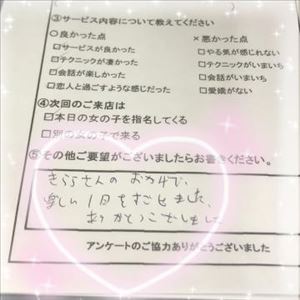 ③サービス内容について教えてください
○良かった点 ×悪かった点
□サービスが良かった □やる気が感じれない
□テクニックが凄かった □テクニックがいまいち
□会話が楽しかった □会話がいまいち
□恋人と過ごすような感じだった □愛嬌がない
④次回のご来店は
□本日の女の子を指名してくる
□別の女の子で来る
⑤その他ご要望がございましたらお書きください。
きららさんのおかげで、
楽しい1日をすごせました。
ありがとうございました
アンケートのご協力ありがとうございました